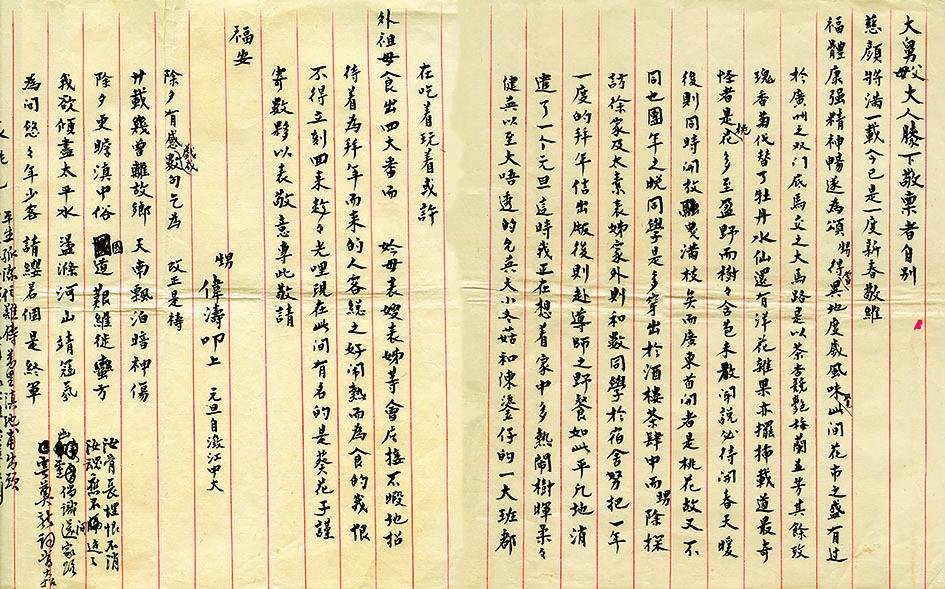 大舅父母大人膝下敬稟者自别
慈顏將滿一載今已是一度新春敬維
福體康强精神暢遂為頌甥得異地度歲風味此間花市之盛有过
於廣州之双门底馬交之大馬路是以茶杏競艷梅蘭並芳其餘玫
瑰香菊代替了牡丹水仙還有洋花雜果亦擺揷載道最奇
怪者是桃花多至盈野而樹々含苞未散聞說必待開春天暖
後則同時開放搖曳滿枝矣而廣東首開者是桃花故又不
同也團年之晚同學是多穿出於酒樓茶肆中而甥除探
訪徐家及太素表姊家外則和數同學於宿舍努把一年
一度的拜年信出版後則赴導師之野餐如此平凡地消
遣了一个元旦這時我正在想着家中多熱鬧樹暉柔々
健英以至大唔透的允英大小冬菇和陳鎏仔的一大班都
在吃着玩着或許
外祖母食出四大番而 妗母表嫂表姊等會応接不暇地招
待着為拜年而来的人客総之好闹熱而為食的我恨
不得立刻回来趁々老哩現在此間有名的是葵花子謹
寄数夥以表敬意專此敬請
福安
甥 偉濤叩上 元旦自澂江中大
除夕有感數句乞為 改正是禱
廿載幾曾離故鄉 天南飄泊暗神傷
除夕更瞭滇中俗 國道艱維徙蠻方
我欲傾盡太平水 盪滌河山靖寇氛
為问悠々年少客 請纓若個是終軍
汝骨長埋恨不消